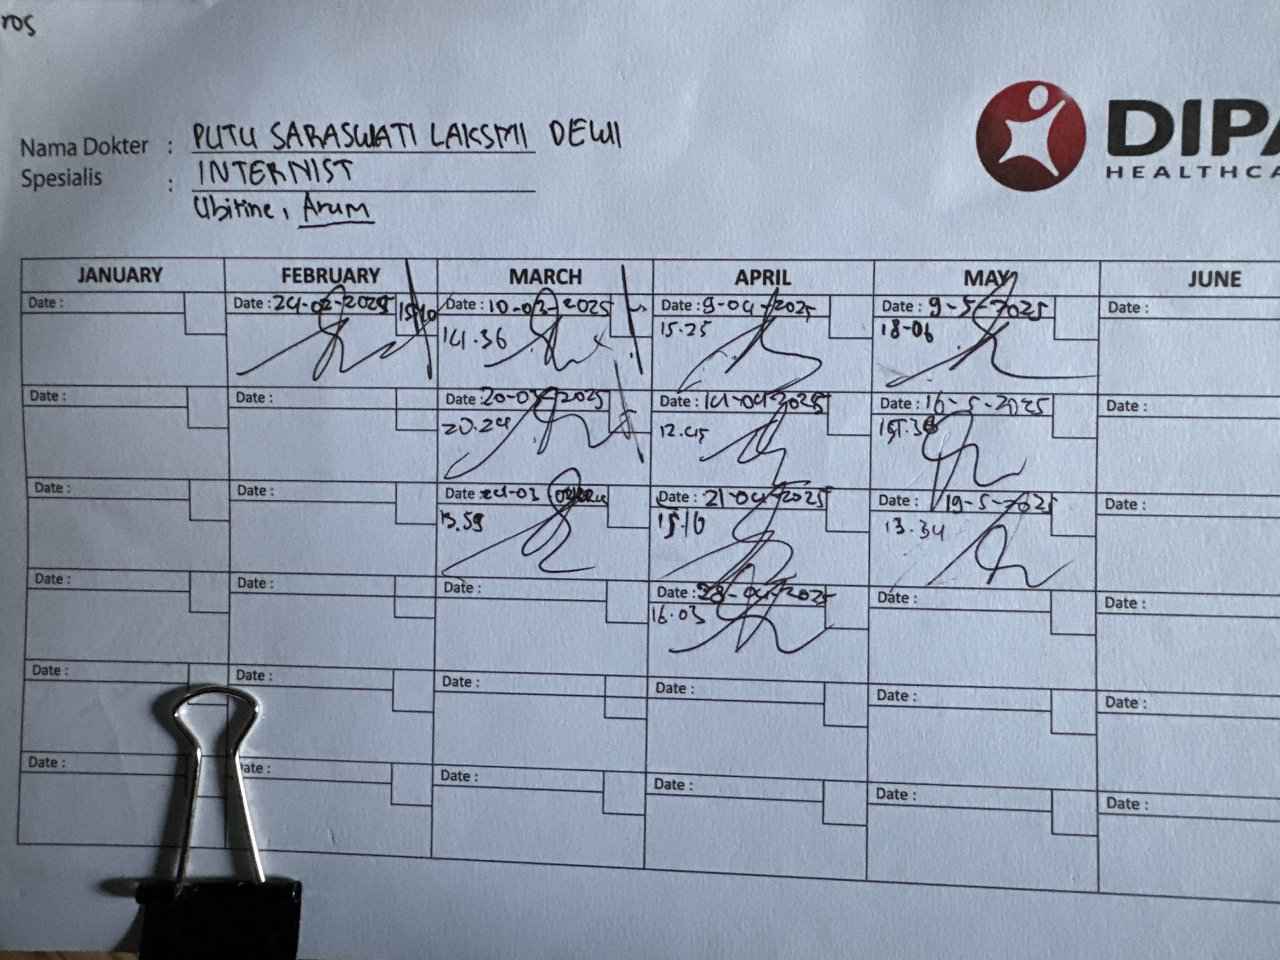 ros
DIPA
HEALTHCA
Nama Dokter : PUTU SARASWATI LAKSMI DEWI
Spesialis : INTERNIST
Arum
JANUARY FEBRUARY MARCH APRIL MAY JUNE
Date : Date : 24-02-2025 Date : 10-03-2025 Date : 9-04-2025 Date : 9-5-2025 Date :
15.10 14.36 15.25 18-06
Date : Date : Date : 20-03-2025 Date : 14-04-2025 Date : 16-5-2025 Date :
20.24 12.45
Date : Date : Date : 24-03 Date : 21-04-2025 Date : 19-5-2025 Date :
13.59 15.16 13.34
Date : Date : Date : Date : 28-04-2025 Date : Date :
16.03
Date : Date : Date : Date : Date : Date :
Date : Date : Date : Date : Date : Date :